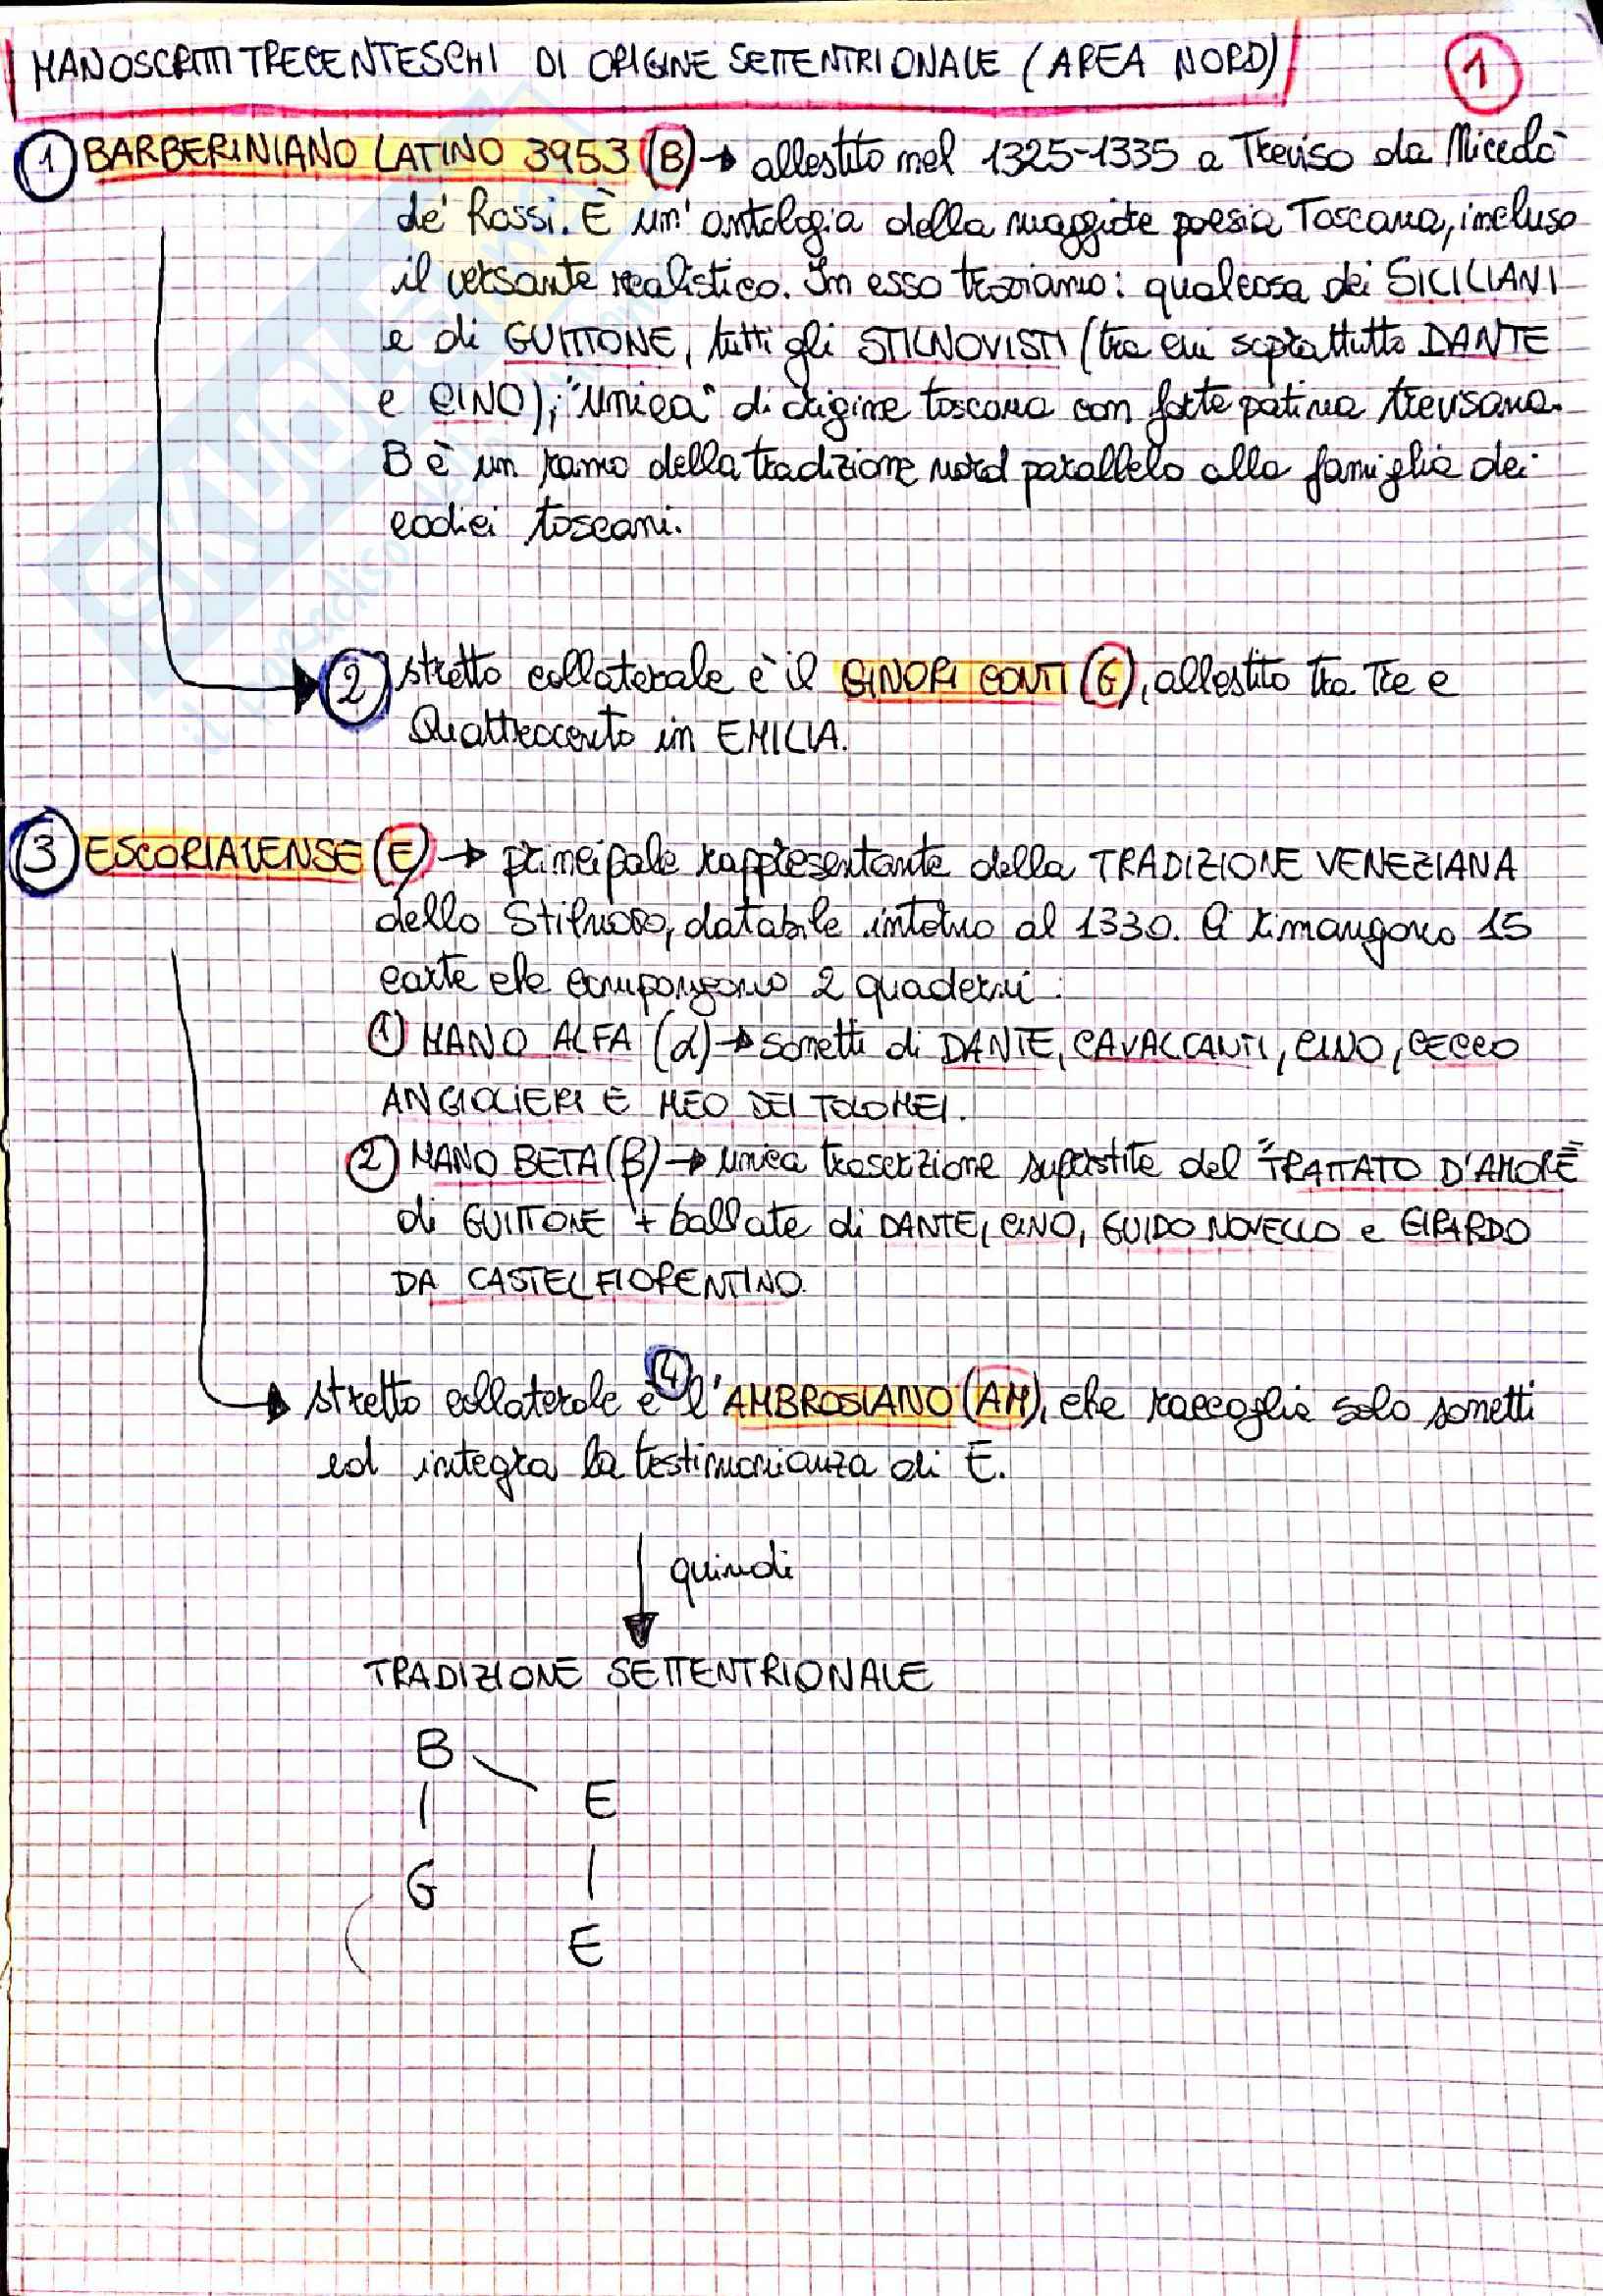 MANOSCRITTI TRECENTESCHI DI ORIGINE SETTENTRIONALE (AREA NORD)
1
1 BARBERINIANO LATINO 3953 (B) → allestito nel 1325-1335 a Treviso da Nicolò
de' Rossi. È un' antologia della maggiore poesia Toscana, incluso
il versante realistico. In esso troviamo: qualcosa dei SICILIANI
e di GUITTONE, tutti gli STILNOVISTI (tra cui soprattutto DANTE
e CINO); "unica" di origine toscana con forte patina trevisana.
B è un ramo della tradizione nord parallelo alla famiglia dei
codici toscani.
2 stretto collaterale è il GINORI CONTI (G), allestito tra Tre e
Quattrocento in EMILIA.
3 ESCORIALENSE (E) → principale rappresentante della TRADIZIONE VENEZIANA
dello Stilnovo, databile intorno al 1330. Ci rimangono 15
carte che compongono 2 quaderni:
1) MANO ALFA (α) → sonetti di DANTE, CAVALCANTI, CINO, CECCO
ANGIOLIERI E MEO DEI TOLOMEI.
2) MANO BETA (β) → unica trascrizione superstite del "TRATTATO D'AMORE"
di GUITTONE + ballate di DANTE, CINO, GUIDO NOVELLO e GIRARDO
DA CASTELFIORENTINO.
4
stretto collaterale è l'AMBROSIANO (AM), che raccoglie solo sonetti
ed integra la testimonianza di E.
quindi
TRADIZIONE SETTENTRIONALE
B
E
G
E